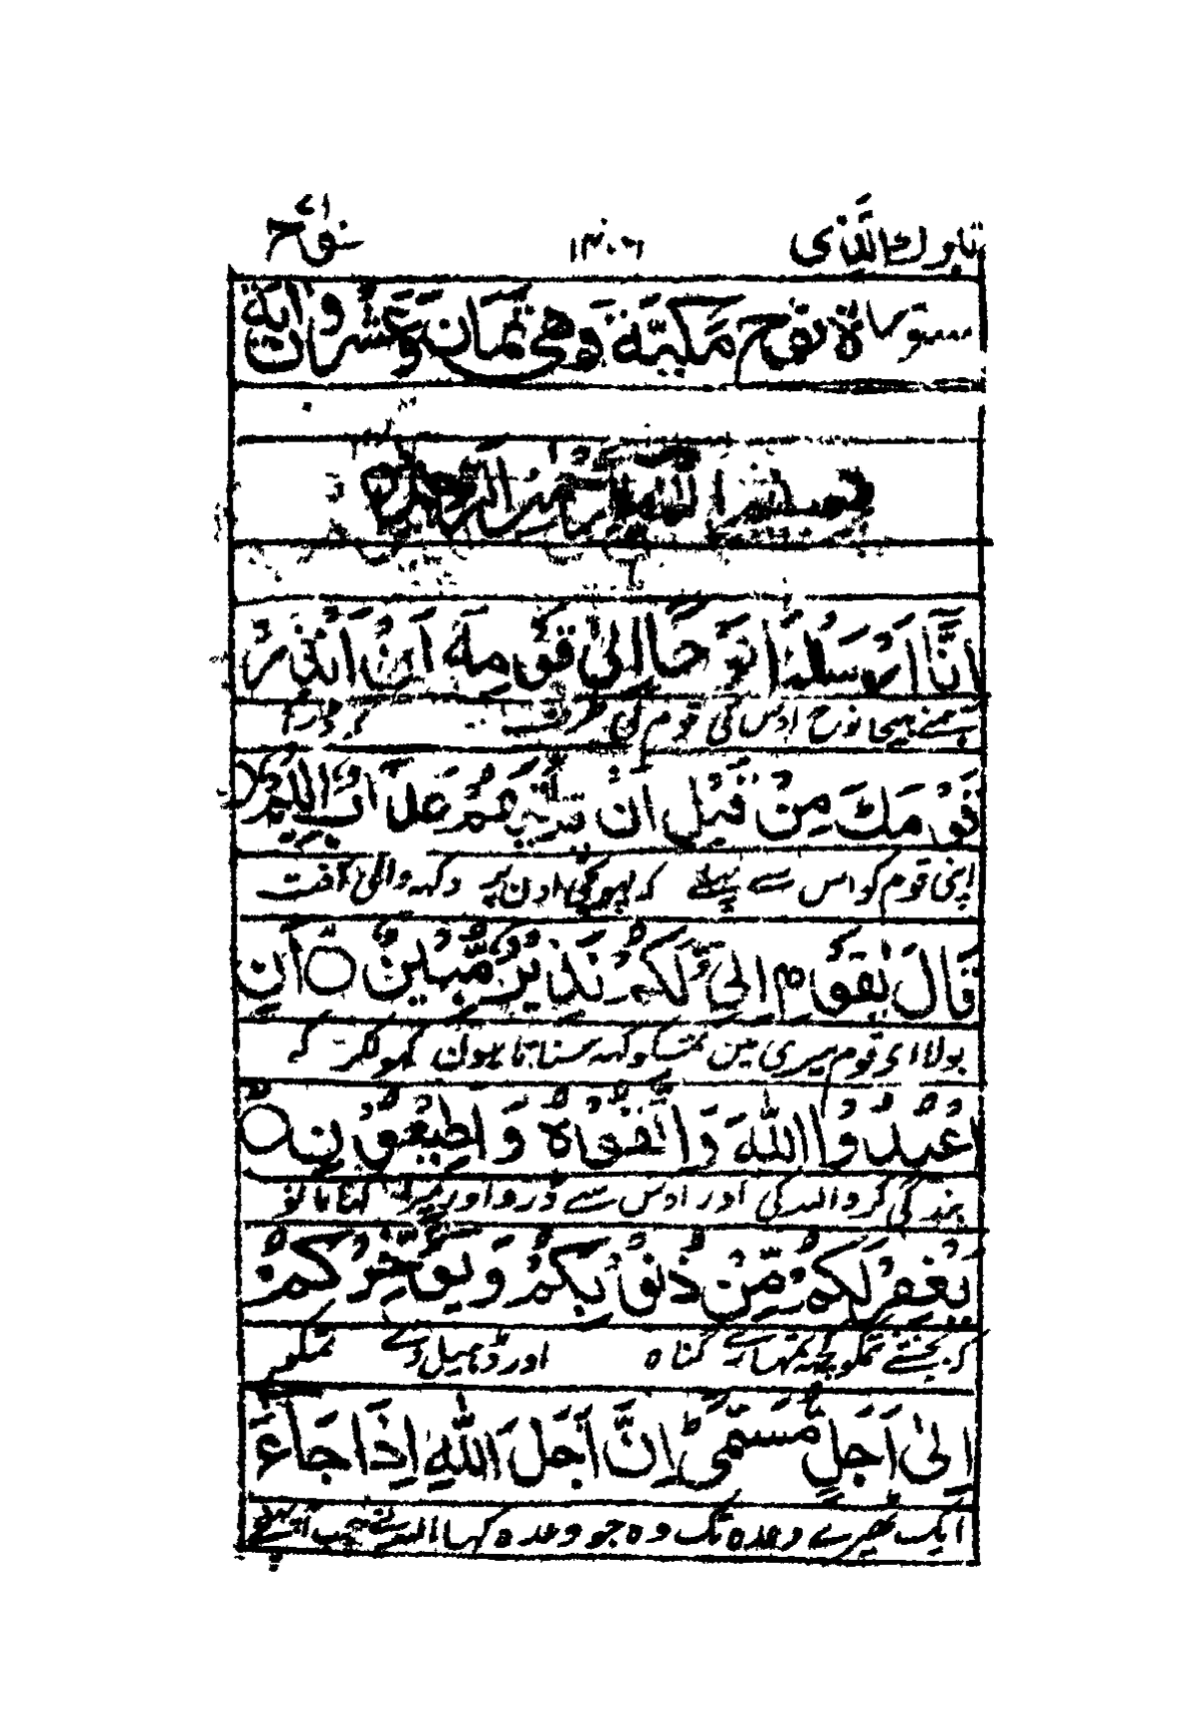 تبارك الذی ١٤٠٦ نوح ٧١
سورة نوح مكية وهی ثمان وعشرون اية
بسم الله الرحمن الرحيم
اِنَّا اَرْسَلْنَا نُوْحًا اِلٰى قَوْمِهٖ اَنْ اَنْذِرْ
ہمنے بھیجا نوح اوس کی قوم کی طرف کہ ڈرا
قَوْمَكَ مِنْ قَبْلِ اَنْ يَّاْتِيَهُمْ عَذَابٌ اَلِيْمٌ
اپنی قوم کو اس سے پہلے کہ پہونچی اون پر دکہہ والی آفت
قَالَ يٰقَوْمِ اِنِّىْ لَكُمْ نَذِيْرٌ مُّبِيْنٌ ○ اَنِ
بولا اے قوم میری مین تمکو کہہ سناتا ہون کہولکر کہ
اعْبُدُوا اللّٰهَ وَاتَّقُوْهُ وَاَطِيْعُوْنِ ○
بندگی کرو اللہ کی اور اوس سے ڈرو اور میرا کہنا مانو
يَغْفِرْ لَكُمْ مِّنْ ذُنُوْبِكُمْ وَيُؤَخِّرْكُمْ
کہ بخشے تمکو کچہہ تمہارے گناہ اور ڈہیل دے تمکو
اِلٰٓى اَجَلٍ مُّسَمًّى ؕ اِنَّ اَجَلَ اللّٰهِ اِذَا جَآءَ
ایک ٹھیرے وعدہ تک وہ جو وعدہ کہا اللہ نے جب